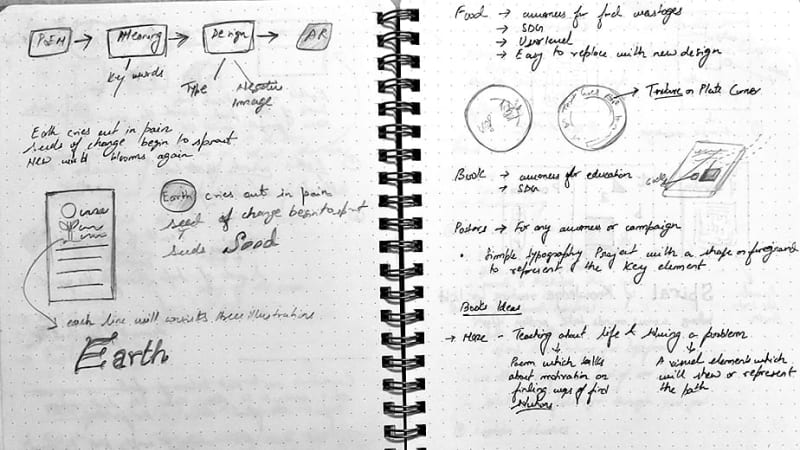 POEM → Meaning → Design → AR
Key words
Type
Negative
Image
Earth cries out in pain
seeds of change begin to sprout
New world blooms again
Earth cries out in pain
seed of change begin to sprout
seeds Seed
each line will consists three illustrations
Earth
Food → awarness for food wastages
→ SDG
→ User level
→ Easy to replace with new design
→ Texture on Plate Corner
Book → awarness for education
→ SDG
Posters → For any awarness or campaign
• Simple typography Project with a shape or foreground
to represent the Key element
Books Ideas
→ Maze - Teaching about life & a problem
Poem which talks
about motivation or
finding ways of find
A visual elements which
will show or represent
the path